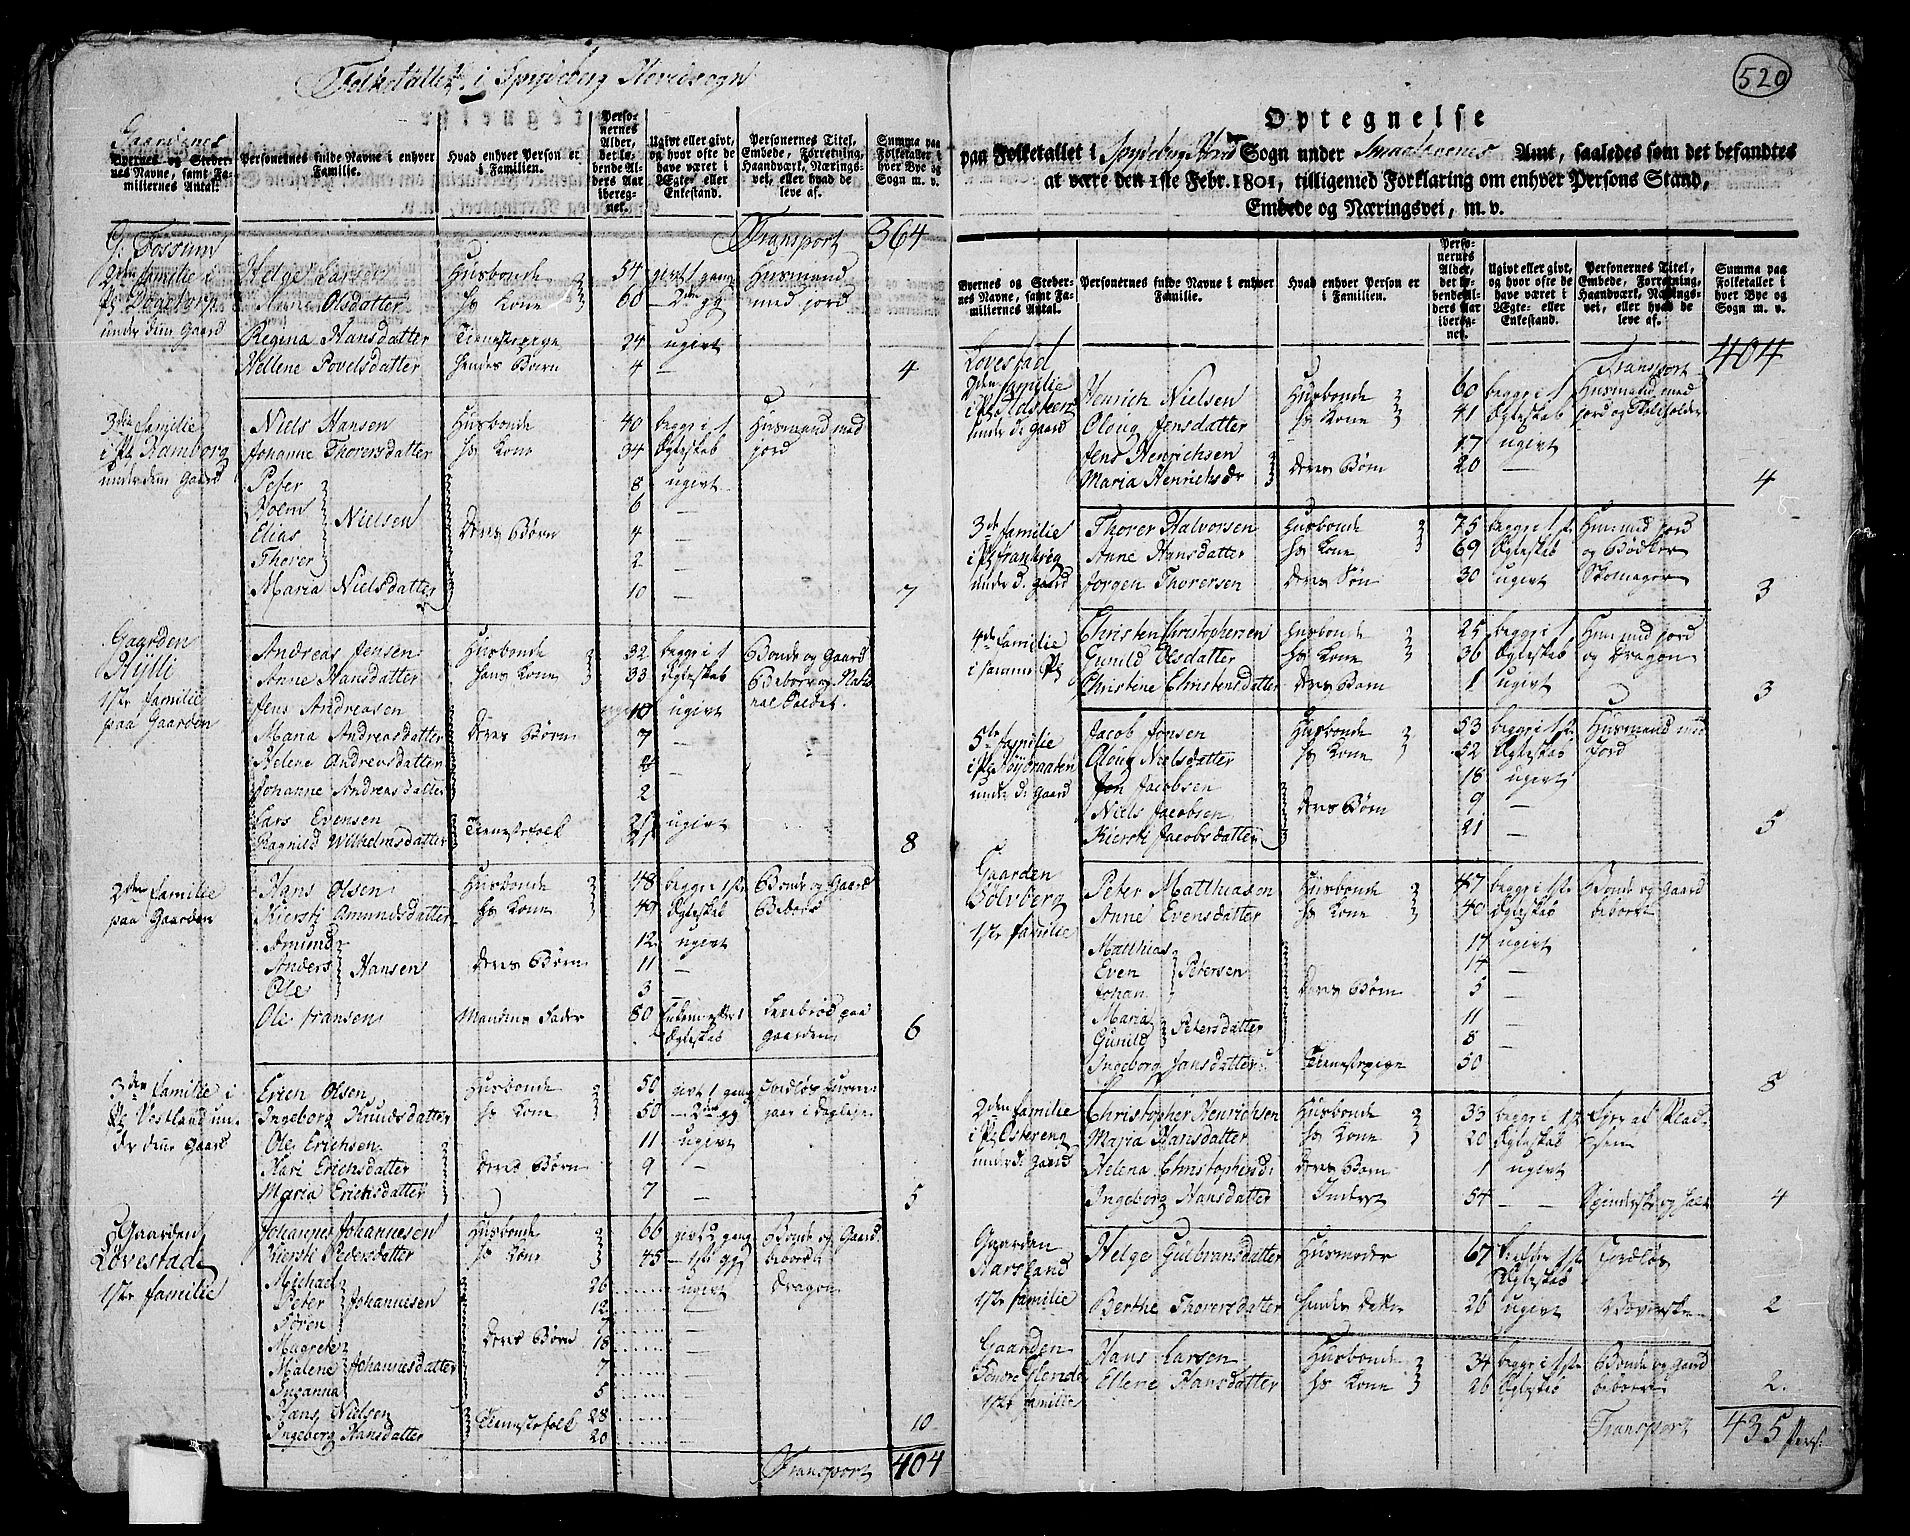 520
Folketallet i Spydeberg Hovedsogn
Gaardenes
Byernes og Stedernes Navne, samt Familiernes Antal.
Personernes fulde Navne i enhver Familie.
Hvad enhver Person er i Familien.
Personernes Alder, det løbende Alders Aar iberegnet.
Ugivt eller givt, og hvor ofte de have været i Ægte- eller Enkestand.
Personernes Titel, Embede, Forretning, Haandværk, Næringsvei, eller hvad de leve af.
Summa paa Folketallet i hver Bye og Sogn m. v.
Transport 364
G. Fossum
2den familie i
under denne Gaard
Helge Larsen Husbonde 54 givt 1 gang Husmand
Anne Olsdatter hs Kone 60 — 2den gg med jord
Regina Hansdatter Tienestepige 24 ugivt
Hellene Povelsdatter hendes Børn 4 — 4
3die familie
i Pl. Ramborg
under denne Gaard
Niels Hansen Husbonde 40 begge i 1 Husmand med
Johanne Thorersdatter hs Kone 34 Ægteskab jord
Peter 8 ugivt
6 —
Elias Nielsen deres Børn 4 —
Thorer 2 —
Maria Nielsdatter 10 — 7
Gaarden
1ste familie
paa Gaarden
Andreas Jensen Husbonde 32 begge i 1 Bonde og Gaard
Anne Hansdatter hans Kone 33 Ægteskab
Jens Andreasen 10 ugivt
Maria Andreasdatter deres Børn 7 —
Helene Andreasdatter —
Johanne Andreasdatter 2 —
Lars Evensen 21 ugivt
Ragnild Wilhelmsdatter Tienestefolk 21 — 8
2den familie
paa Gaarden
Hans Olsen Husbonde 48 begge i 1ste Bonde og Gaard
Kiersti Amundsdatter hs Kone 49 Ægteskab Beboer
Amund 12 ugivt
Anders Hansen deres Børn 11 —
Ole 3 —
Ole Hansen Mandens Fader 80
Ægteskab gaarden 6
3den familie i
Pl. Vestland un-
der denne Gaard
Erich Olsen Husbonde 50 givt 1 gang
Ingeborg Knudsdatter hs Kone 50 — 2den gg
Ole Erichsen 11 ugivt
Kari Erichsdatter deres Børn 9 —
Maria Erichsdatter 7 — 5
Gaarden
Lövestad
1ste familie
Johannes Johannesen Husbonde 66 givt 2 gang Bonde og Gaard
Kiersti Pedersdatter hs Kone 45 — 1ste gg beboer
Michael 26 ugivt Dragon
Peter Johannesen 12 —
Sören 7 —
Magrete deres Børn 18 —
Malene Johannesdatter 7 —
Susanna 5 —
Hans Nielsen Tienestefolk 28 —
Ingeborg Hansdatter 20 — 10
Transport 404
Optegnelse
paa Folketallet i Spydeberg Hoved Sogn under Smaalenenes Amt, saaledes som det befandtes
at være den 1ste Febr. 1801, tilligemed Forklaring om enhver Persons Stand,
Embede og Næringsvei, m. v.
Byernes og Stedernes Navne, samt Familiernes Antal.
Personernes fulde Navne i enhver Familie.
Hvad enhver Person er i Familien.
Personernes Alder, det løbende Alders Aar iberegnet.
Ugivt eller givt, og hvor ofte de have været i Ægte- eller Enkestand.
Personernes Titel, Embede, Forretning, Haandværk, Næringsvei, eller hvad de leve af.
Summa paa Folketallet i hver Bye og Sogn m. v.
Transport 404
Lövestad
2den familie
under d. Gaard
Henrich Nielsen Husbonde 60 begge i 1 Husmand med
Oloug Jensdatter hs Kone 41 Ægteskab jord og
Jens Henrichsen 17 ugivt
Maria Henrichsdr deres Börn 20 — 4
3de familie
under d. Gaard
Thorer Halvorsen Husbonde 75 begge i 1ste Husm. med jord
Anne Hansdatter hs Kone 69 Ægteskab og Bödker
Jorgen Thorersen deres Sön 30 ugivt Skomager 3
4de familie
i samme Pl.
Christen Christophersen Husbonde 25 begge i 1ste Husm. med jord
Gunild Olsdatter hs Kone 36 Ægteskab og Dragon
Christine Christensdatter deres Barn 1 ugivt 3
5te familie
under d. Gaard
Jacob Jonsen Husbonde 53 begge i 1ste Husmand med
Oloug Nielsdatter hs Kone 52 Ægteskab jord
Jon Jacobsen 18 ugivt
Niels Jacobsen deres Börn 9 —
Kiersti Jacobsdatter 21 — 5
Gaarden
Bölvberg
1ste familie
Peter Matthiasen Husbonde 47 begge i 1ste Bonde og Gaard
Anne Evensdatter hs Kone 40 Ægteskab beboer
Matthias 17 ugivt
Even Petersen 14 —
Johan deres Börn 5 —
Maria 11 —
Gunild Petersdatter 8 —
Ingeborg Jansdatter Tienestepige 50 8
2den familie
i Pl. Östereng
under d. Gaard
Christopher Henrichsen Husbonde 33 begge i 1ste
Maria Hansdatter hs Kone 20 Ægteskab
Helena Christophersd. deres Barn 1 ugivt
Ingeborg Hansdatter Inderst 54 — 4
Gaarden
Karsland
1ste familie
Helge Gulbransdatter Husmoder 67
Ægteskab
Berthe Thorersdatter hendes Datter 26 ugivt 2
Gaarden
Söndre Glende
1ste familie
Hans Larsen Husbonde 34 begge i 1ste Bonde og Gaard
Ellene Hansdatter hs Kone 26 Ægteskab beboer 2.
Transport 435 Pers: